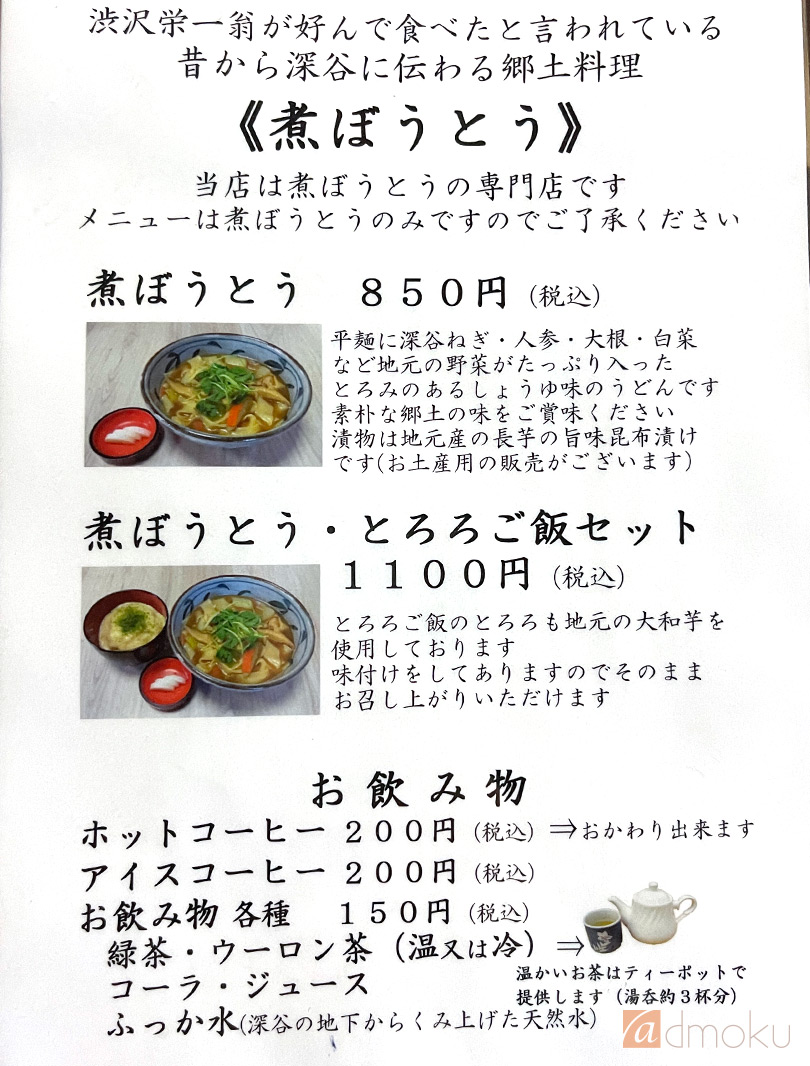 渋沢栄一翁が好んで食べたと言われている
昔から深谷に伝わる郷土料理
《煮ぼうとう》
当店は煮ぼうとうの専門店です
メニューは煮ぼうとうのみですのでご了承ください
煮ぼうとう 850円 (税込)
平麺に深谷ねぎ・人参・大根・白菜
など地元の野菜がたっぷり入った
とろみのあるしょうゆ味のうどんです
素朴な郷土の味をご賞味ください
漬物は地元産の長芋の旨味昆布漬け
です(お土産用の販売がございます)
煮ぼうとう・とろろご飯セット
1100円 (税込)
とろろご飯のとろろも地元の大和芋を
使用しております
味付けをしてありますのでそのまま
お召し上がりいただけます
お飲み物
ホットコーヒー 200円 (税込) ⇒おかわり出来ます
アイスコーヒー 200円 (税込)
お飲み物 各種 150円 (税込)
緑茶・ウーロン茶（温又は冷）⇒
温かいお茶はティーポットで
提供します（湯呑約3杯分）
コーラ・ジュース
ふっか水(深谷の地下からくみ上げた天然水)
admoku